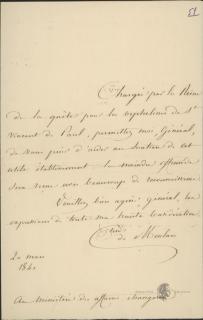 51
Chargée par la Reine
de la quête pour les orphelins de St
Vincent de Paul, permettez moi, Général,
de vous prier d'aider au soutien de cet
utile établissement. la moindre offrande
sera reçue avec beaucoup de reconnaissance.
Veuillez bien agréer, Général, les
expressions de toute ma haute considération.
de
20 mars
184
Au ministère des affaires étrangères